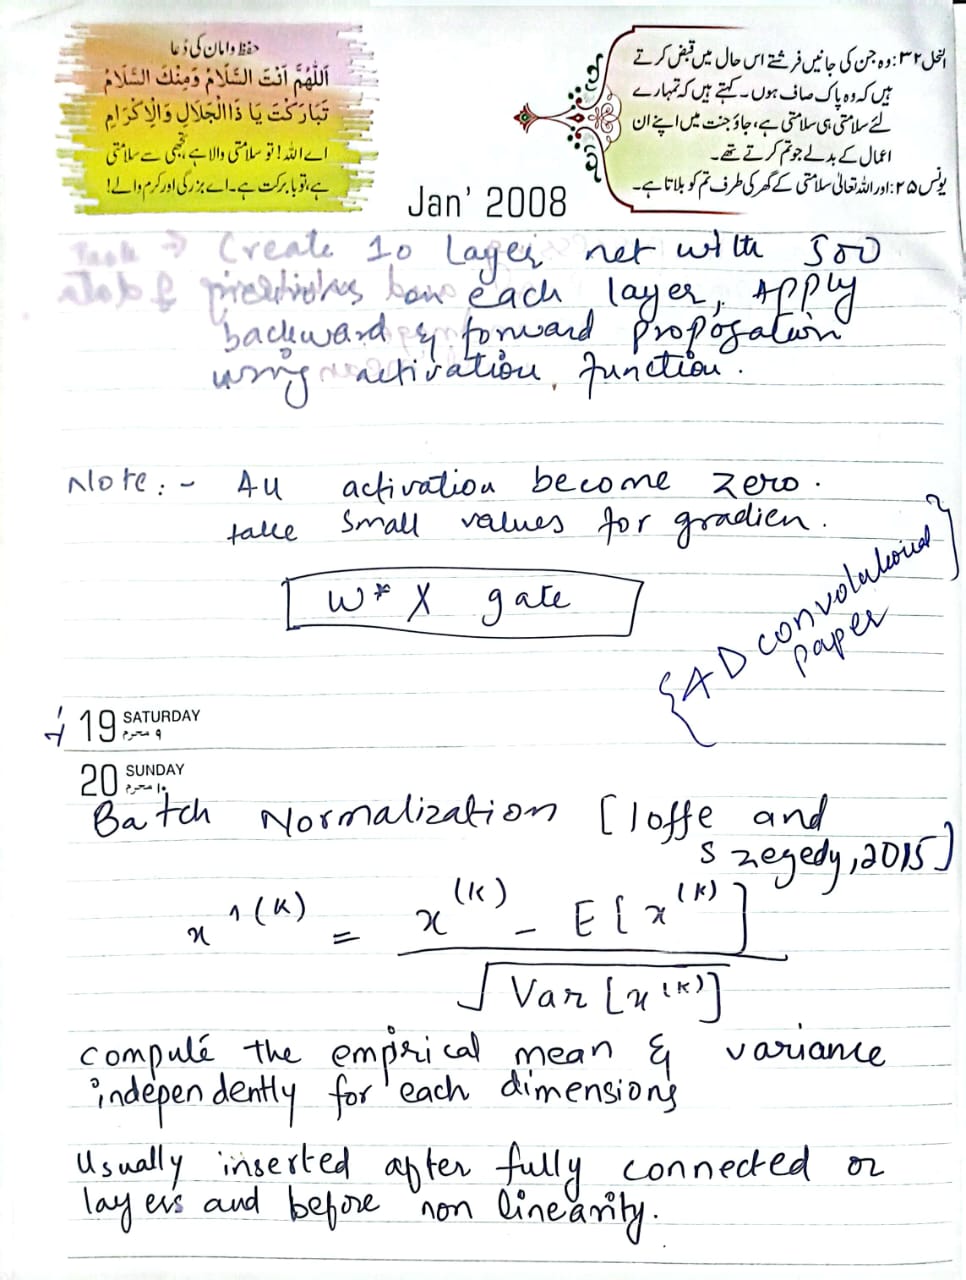 حفظ و امان کی دُعا
اَللّٰهُمَّ اَنْتَ السَّلَامُ وَمِنْكَ السَّلَامُ
تَبَارَكْتَ يَا ذَاالْجَلَالِ وَالْاِكْرَامِ
اے اللہ! تو سلامتی والا ہے، تجھی سے سلامتی
ہے، تو با برکت ہے۔ اے بزرگی اور کرم والے!
النحل ۳۲: وہ جن کی جانیں فرشتے اس حال میں قبض کرتے
ہیں کہ وہ پاک صاف ہوں۔ کہتے ہیں کہ تمہارے
لئے سلامتی ہی سلامتی ہے، جاؤ جنت میں اپنے ان
اعمال کے بدلے جو تم کرتے تھے۔
یونس ۲۵: اور اللہ تعالیٰ سلامتی کے گھر کی طرف تم کو بلاتا ہے۔
Jan' 2008
Task → Create 10 layer net with 500
on each layer, Apply
backward & forward propogation
using activation function.
Note :- All activation become zero.
take small values for gradien.
W * X gate
{ 4D convolutional
paper }
19 SATURDAY
۹ محرم
20 SUNDAY
۱۰ محرم
Batch Normalization [Ioffe and
Szegedy, 2015]
x^(k) = x(k) - E[x(k)]
√Var[x(k)]
compute the empirical mean & variance
independently for each dimensions
Usually inserted after fully connected or
layers and before non linearity.